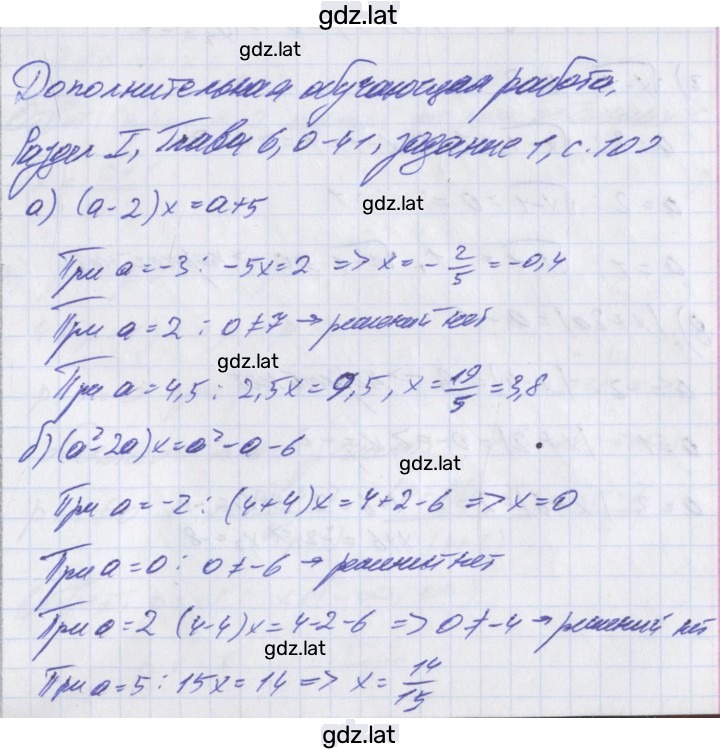 gdz.lat
gdz.lat
Дополнительная обучающая работа.
Раздел I, Глава 6, О-41, задание 1, с. 102
а) (a-2)x=a+5
gdz.lat
При a=-3: -5x=2 => x=-2/5=-0,4
При a=2: 0≠7 → решений нет
gdz.lat
При a=4,5: 2,5x=9,5, x=19/5=3,8
б) (a²-2a)x=a²-a-6
gdz.lat
При a=-2: (4+4)x=4+2-6 => x=0
При a=0: 0≠-6 → решений нет
При a=2 (4-4)x=4-2-6 => 0≠-4 → решений нет
gdz.lat
При a=5: 15x=14 => x=14/15
gdz.lat